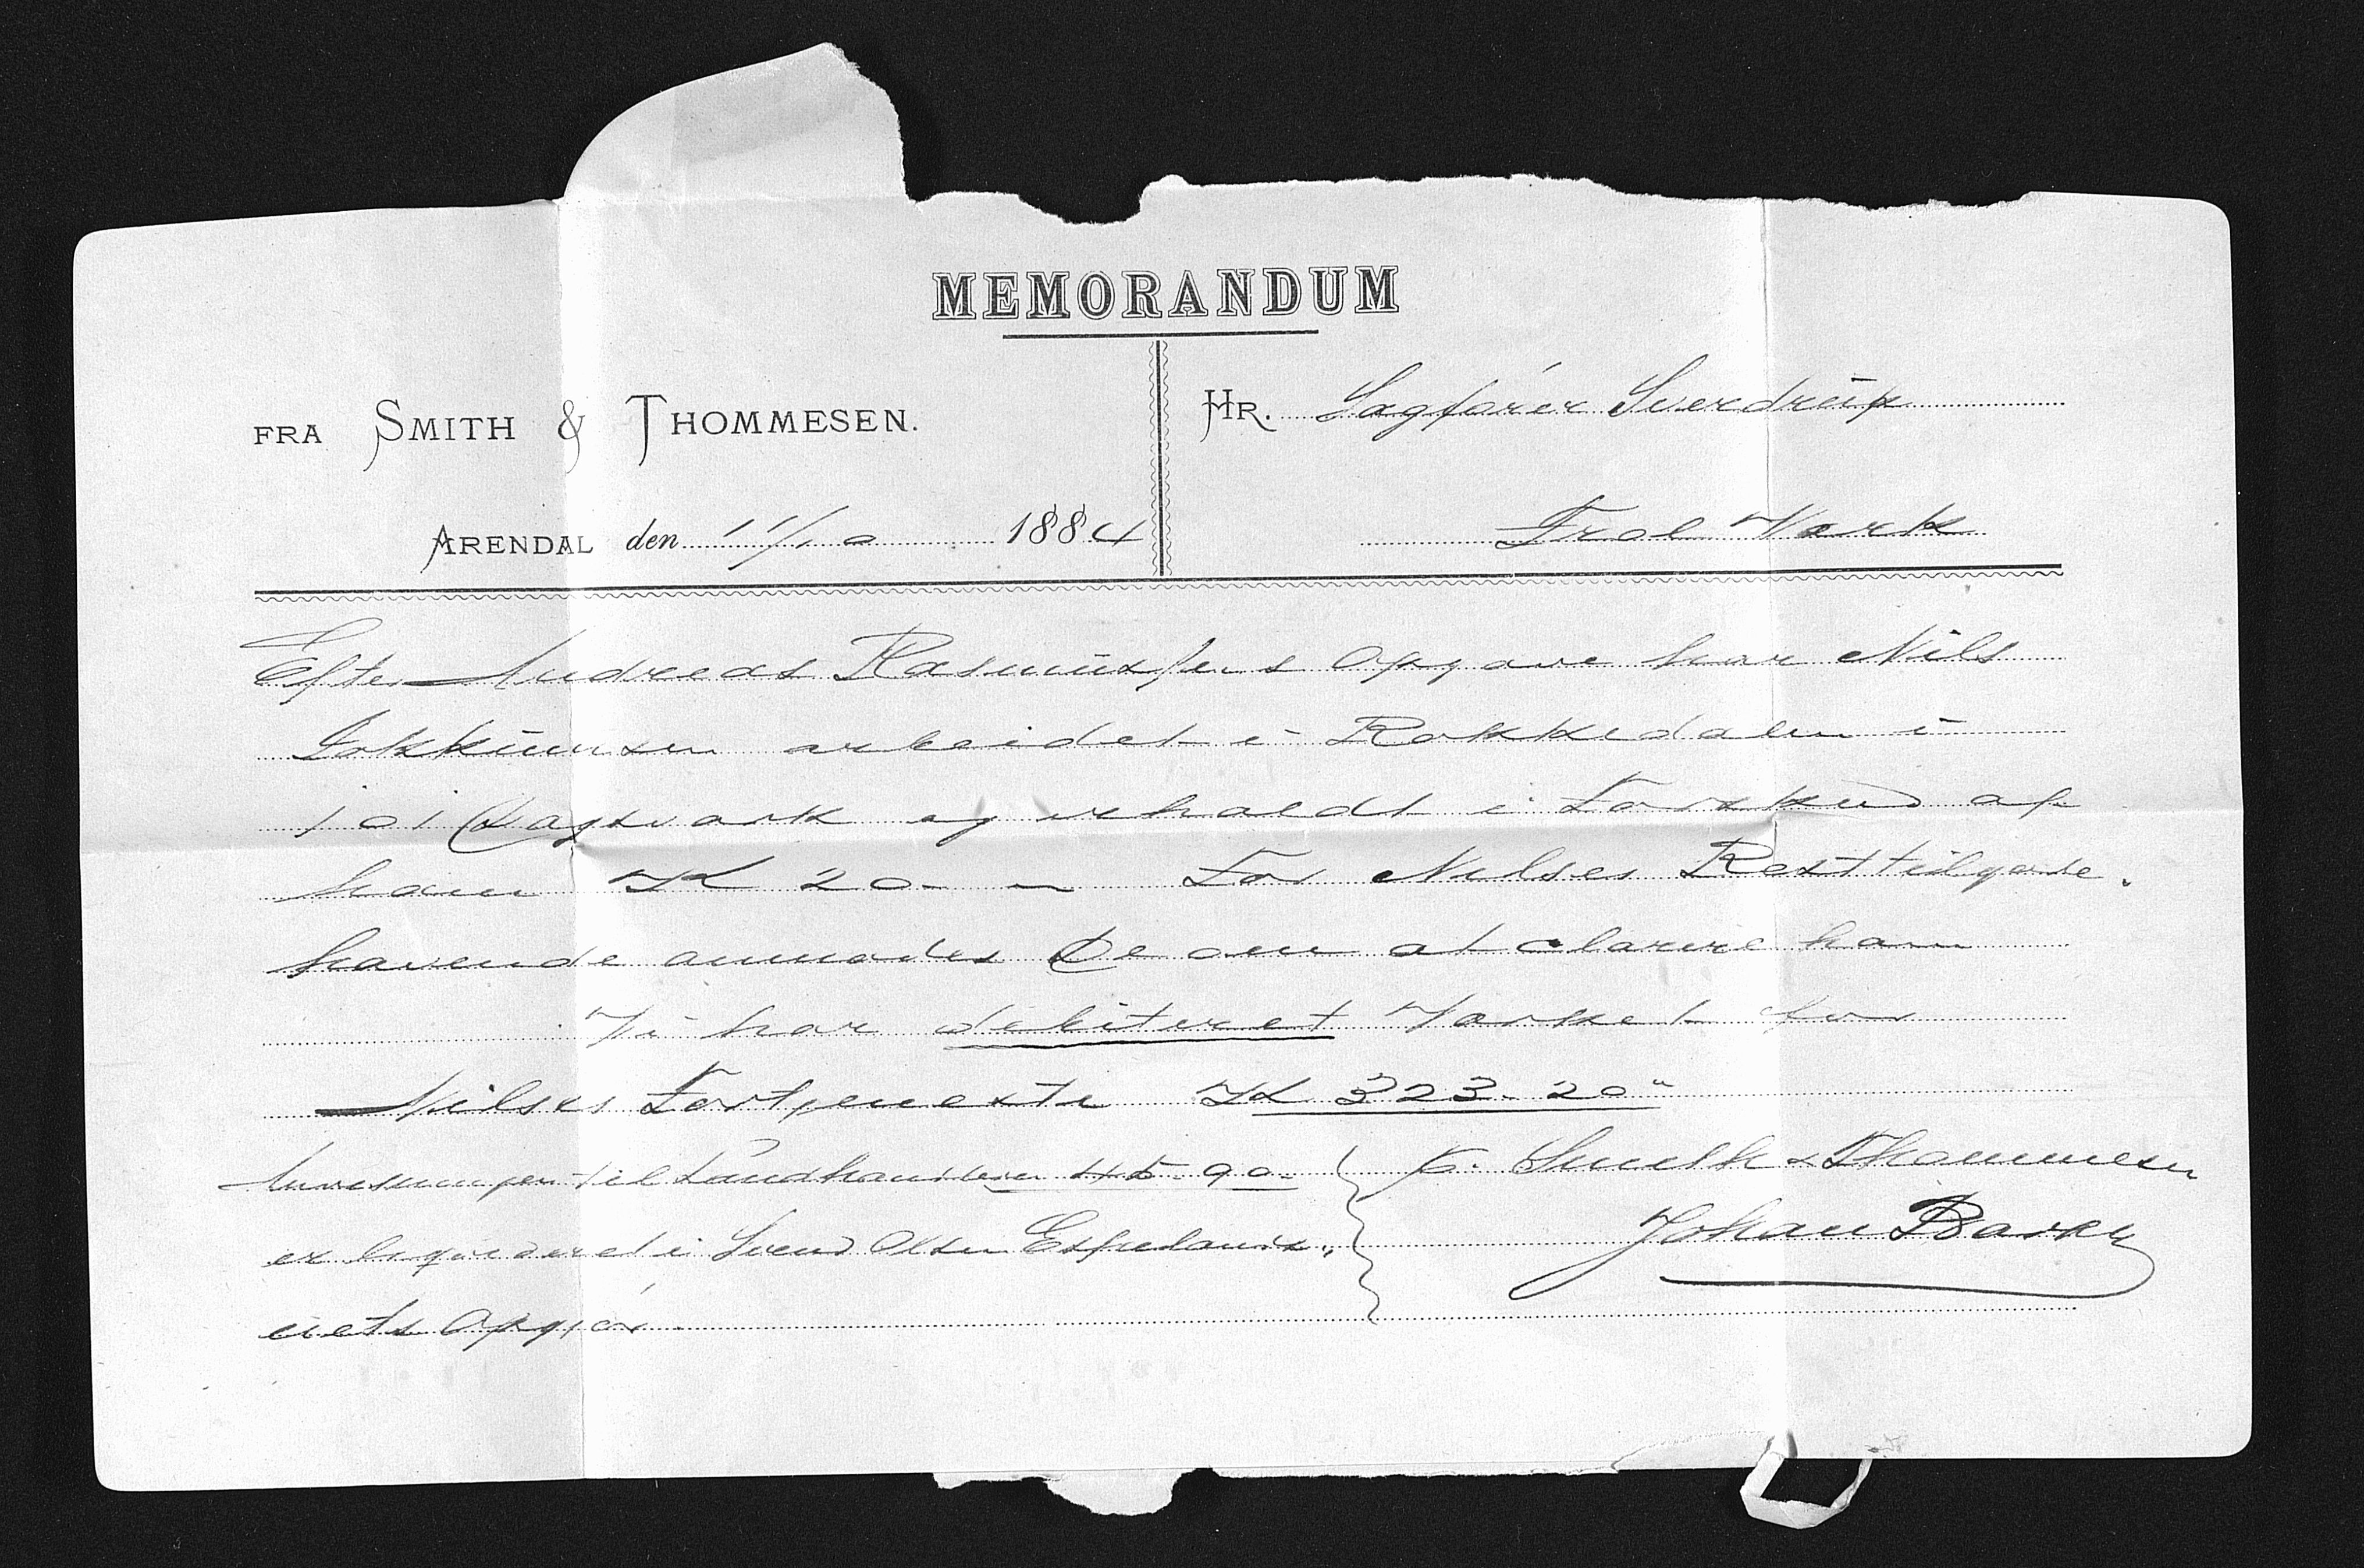 MEMORANDUM
FRA SMITH & THOMMESEN.
ARENDAL den 11/10 1884
HR. Sagfører Sverdrup
Frol Værk
Efter Andreas Rasmussens Opgave har Nils
arbeidet i Rokkedalen i
101 Dagsværk og erholdt i Forskud af
ham K 20. — For Nilses Resttilgode-
havende anmodes De om at clarere ham
Vi har debiteret Værket for
Nilses Fortjeneste K 323.20"
Anvisningen til Landhandleren 45.90.
er liqvideret i Svend Olsen Espelands-
eiets Opgjør
p. Smith & Thommesen
Johan